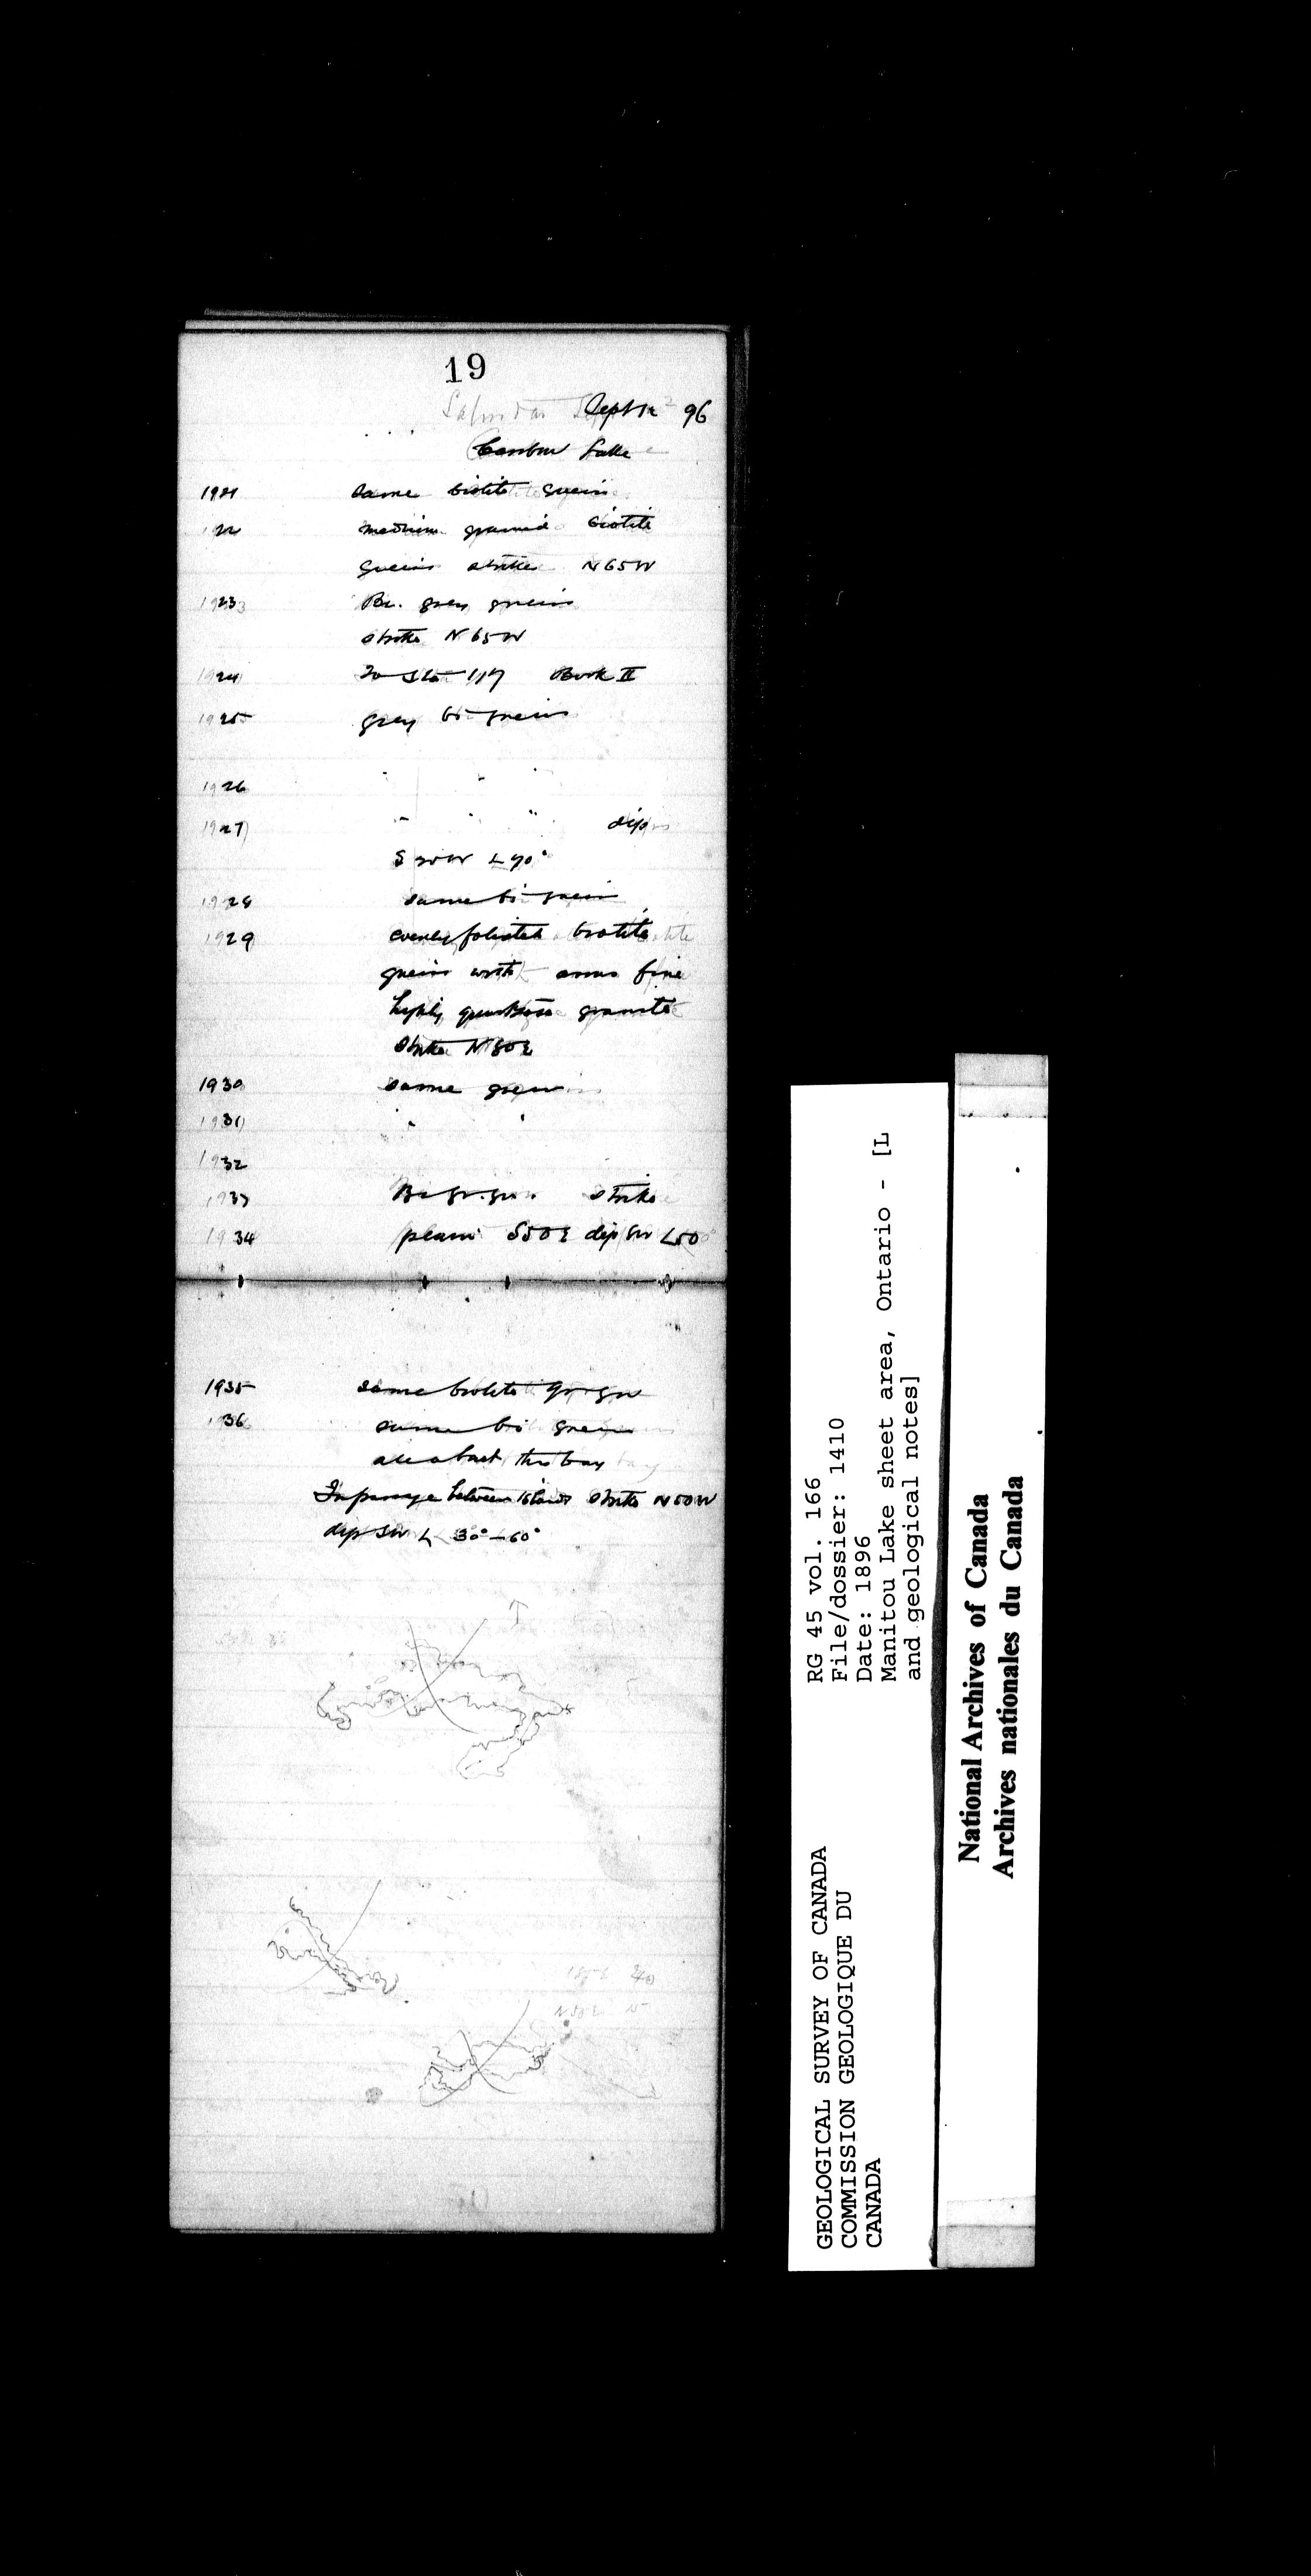 19
Sept 12 96
Caribou Lake
1921 same biotite gneiss
22 medium grained biotite
gneiss strikes N65W
1923 Bi. grey gneiss
strike N65W
1924 To Sta 117 Book II
1925 grey bi gneiss
1926 " " "
1927 " " " dip
S 20W L 70°
1928 same bi gneiss
1929 evenly foliated biotite
gneiss with some fine
highly quartzose granite
strike N80E
1930 same gneiss
1931 " "
1932
1933 Bi gr. gn. strike
1934 plain S50E dip SW L50°
1935 same biotite gr gn
36 same bi gneiss
all about this bay
In passage between islands strike N50W
dip SW L 30°-60°
RG 45 vol. 166
File/dossier: 1410
Date: 1896
Manitou Lake sheet area, Ontario - [L
and geological notes]
GEOLOGICAL SURVEY OF CANADA
COMMISSION GEOLOGIQUE DU
CANADA
National Archives of Canada
Archives nationales du Canada